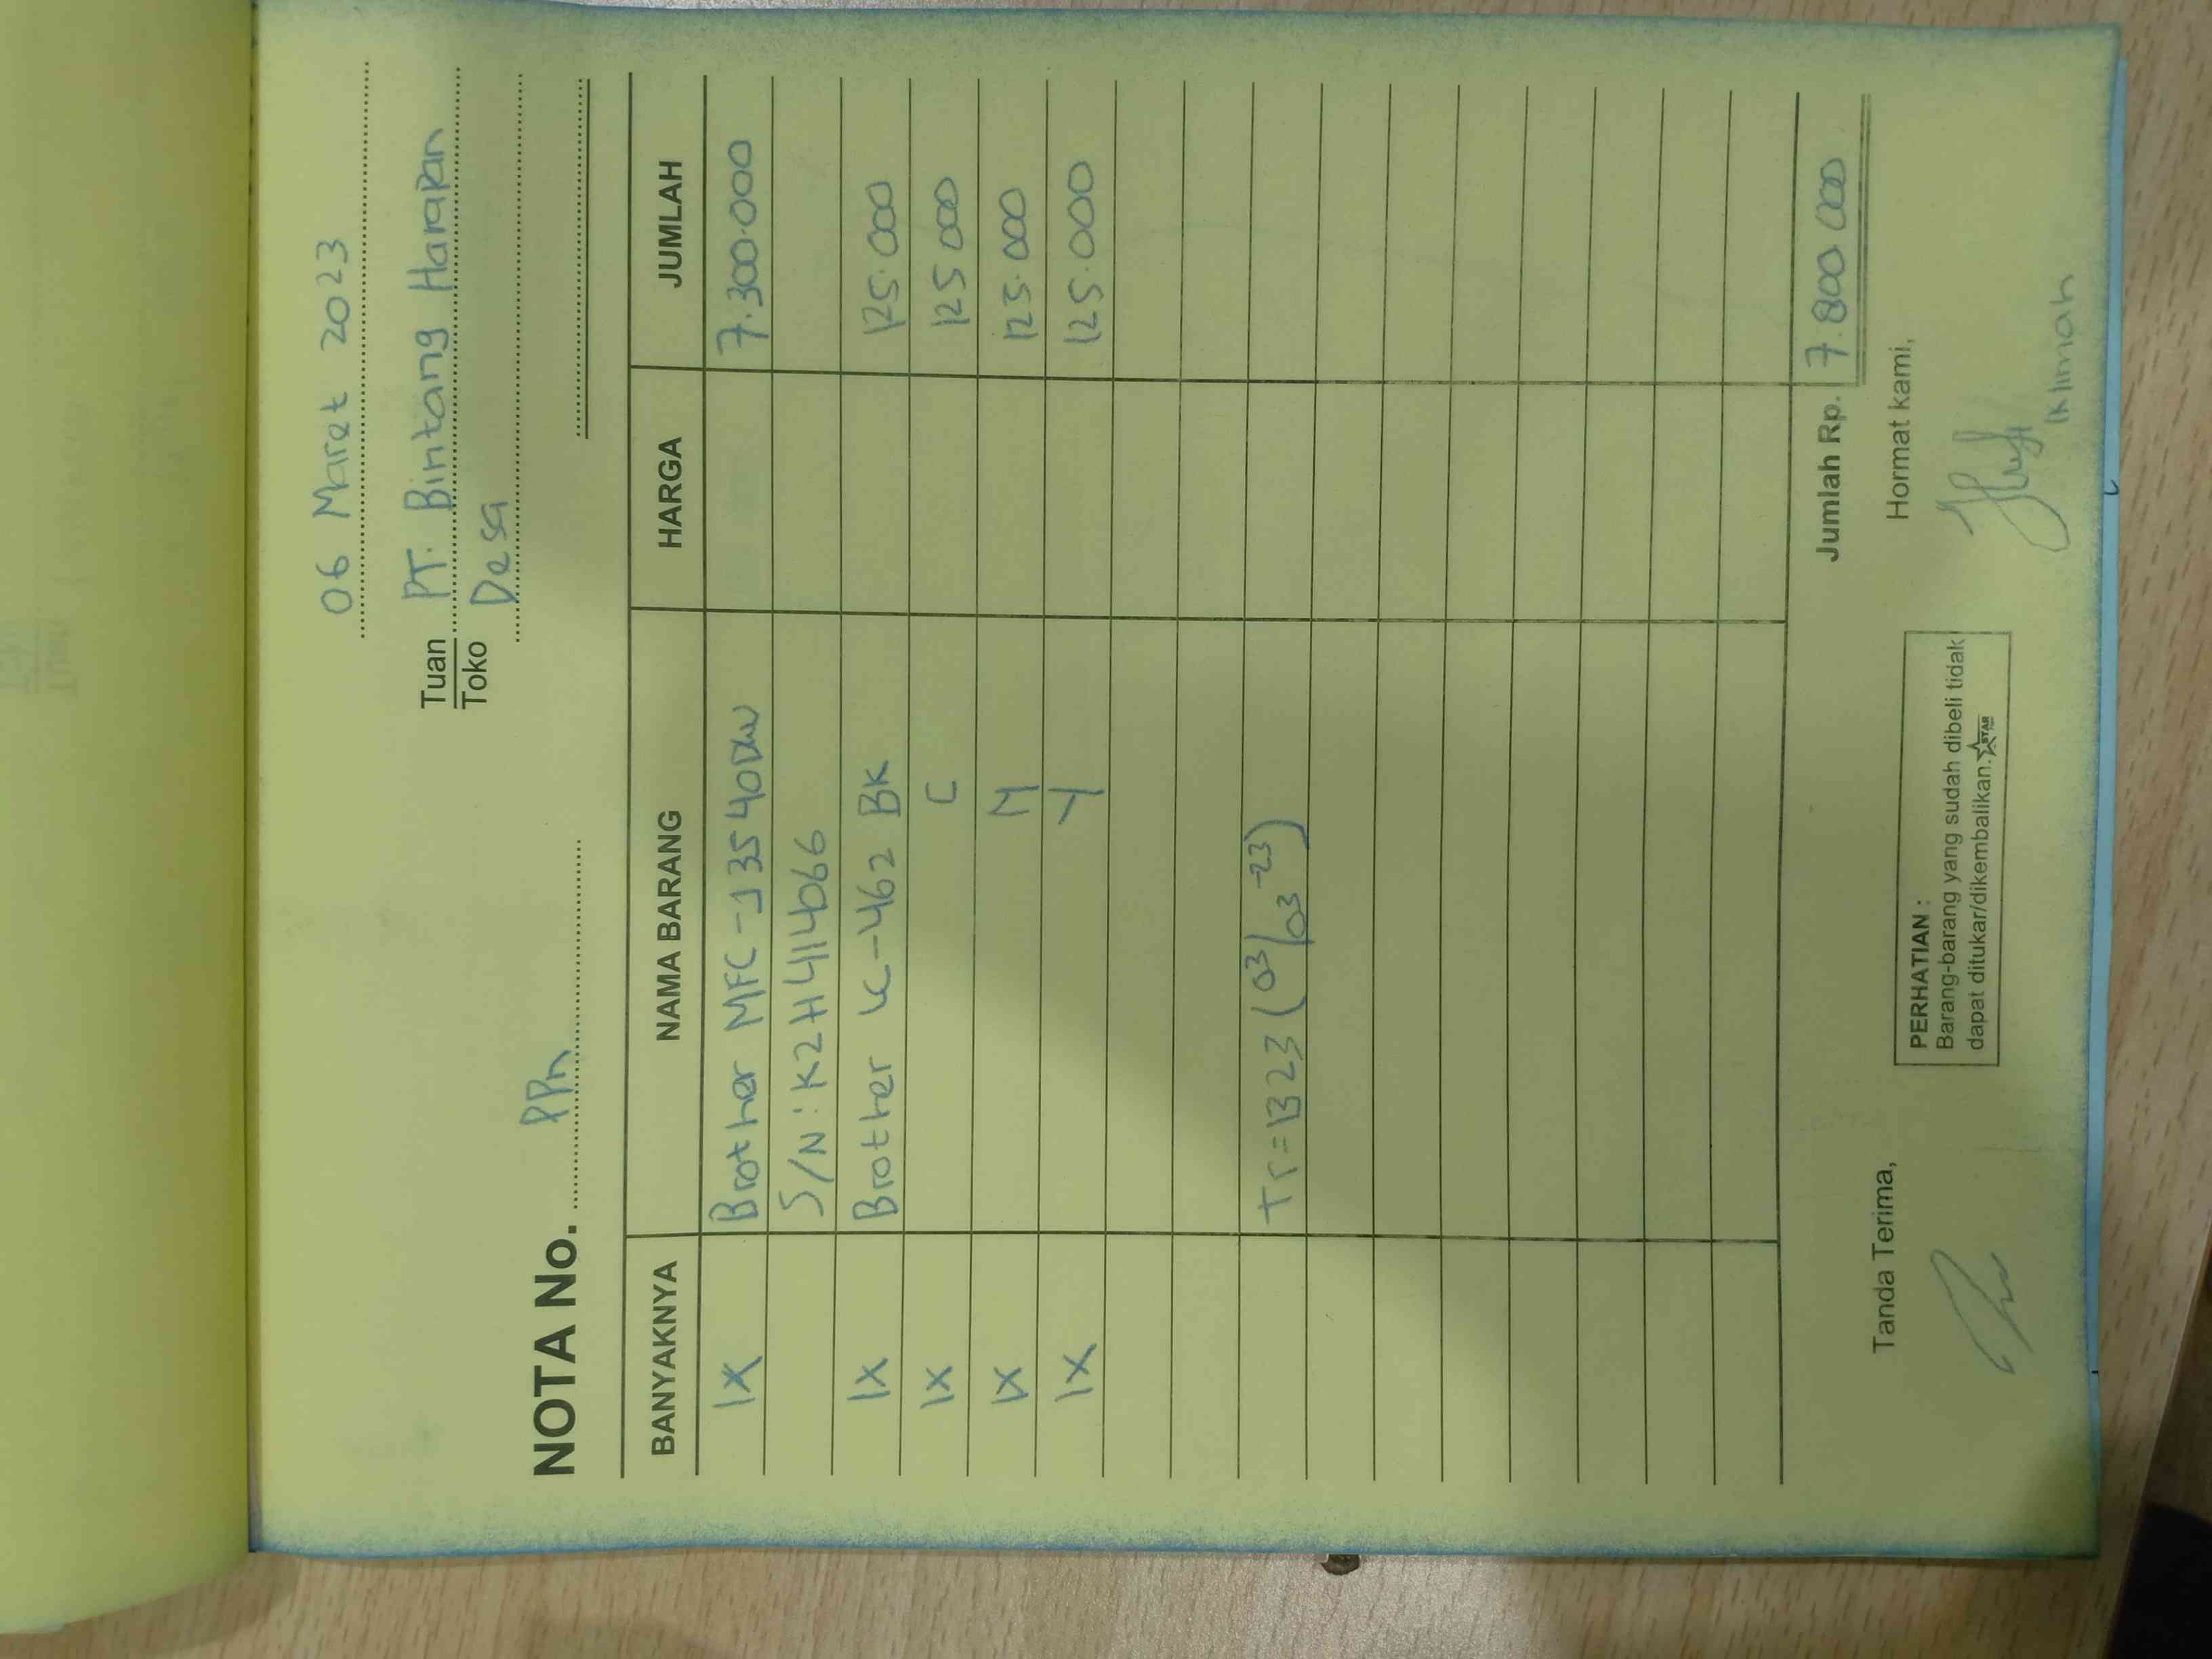 06 Maret 2023
Tuan PT. Bintang Harapan
Toko Desa
NOTA No. PPn
BANYAKNYA NAMA BARANG HARGA JUMLAH
1X Brother MFC-J3540DW 7.300.000
S/N: K2H414066
1X Brother LC-462 BK 125.000
1X C 125 000
1X M 125.000
1X Y 125.000
Tr=1323 (03/03-23)
Jumlah Rp. 7.800.000
Tanda Terima, Hormat kami,
PERHATIAN :
Barang-barang yang sudah dibeli tidak
dapat ditukar/dikembalikan. STAR
Iklimah